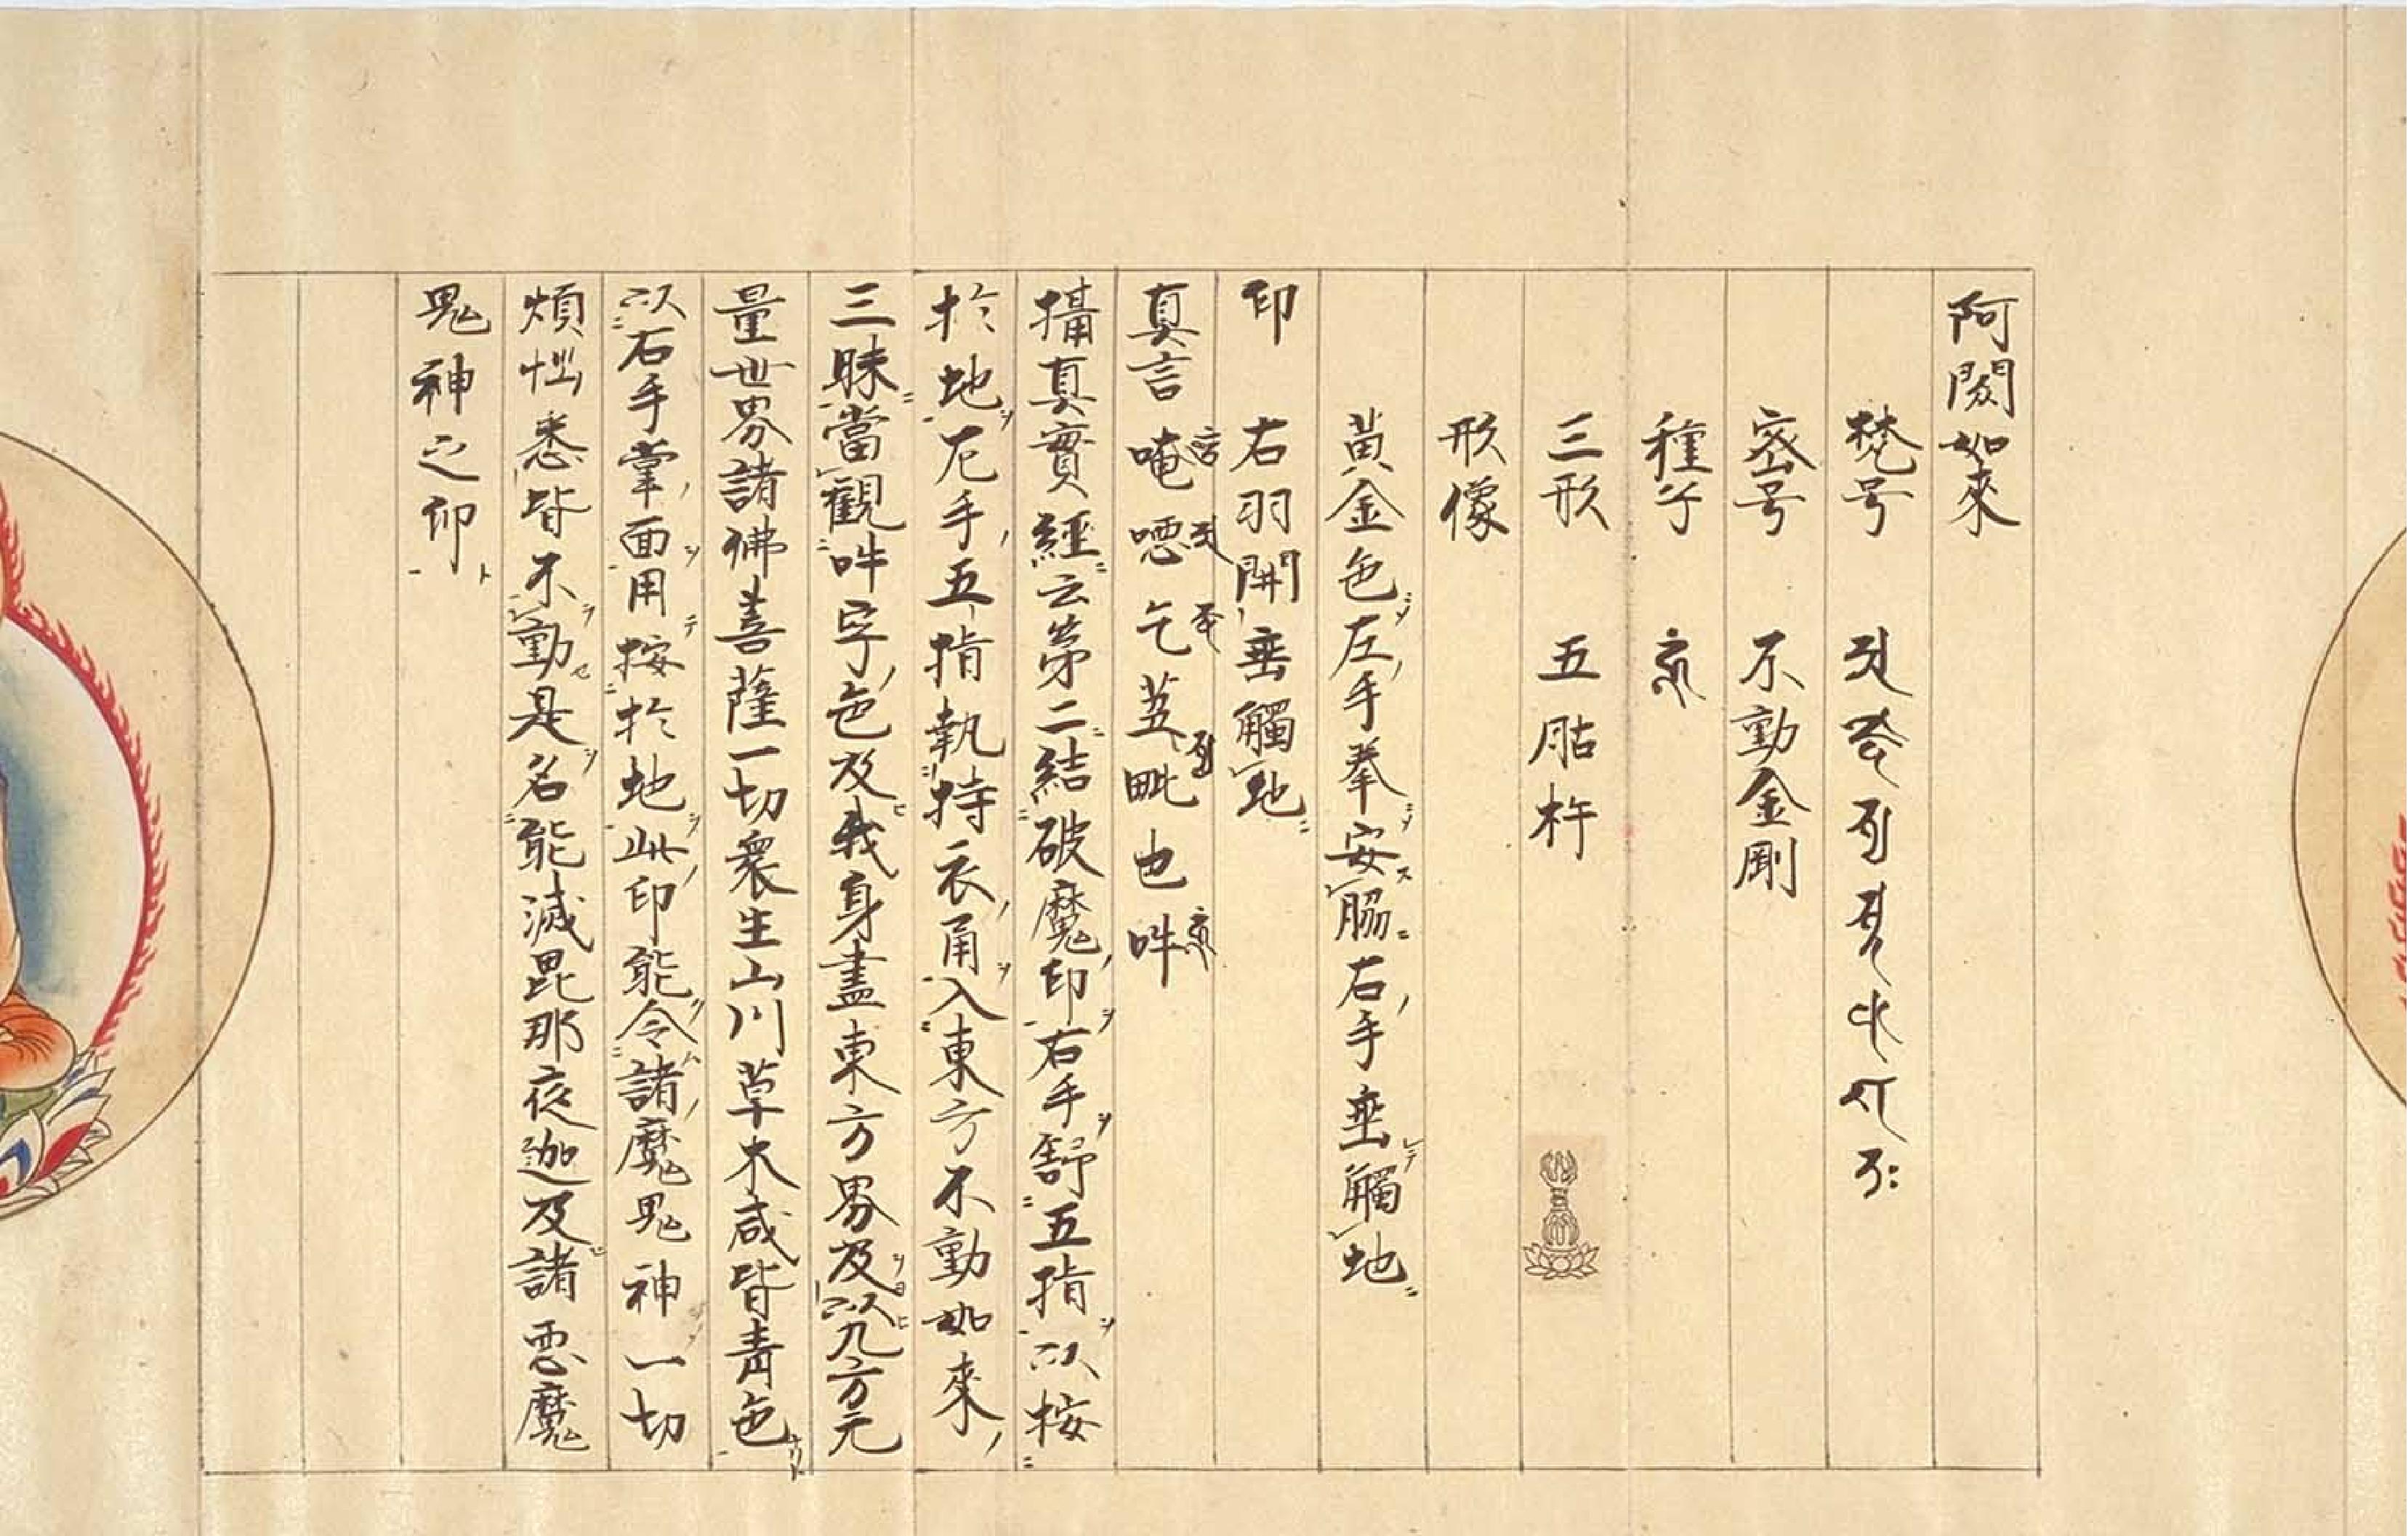 阿閦如來
梵号
密号 不動金剛
種子
三形 五股杵
形像
黄金色左手拳安脇右手垂觸地
印 右羽開垂觸地
真言 唵 噁乞蒭毗也吽
攝真實經云第二結破魔印右手舒五指以按
於地左手五指執持衣角入東方不動如來
三昧當觀吽字色及我身盡東方界及以九方无
量世界諸佛菩薩一切衆生山川草木咸皆青色
以右手掌面用按於地此印能令諸魔鬼神一切
煩惱悉皆不動是名能滅毘那夜迦及諸悪魔
鬼神之印